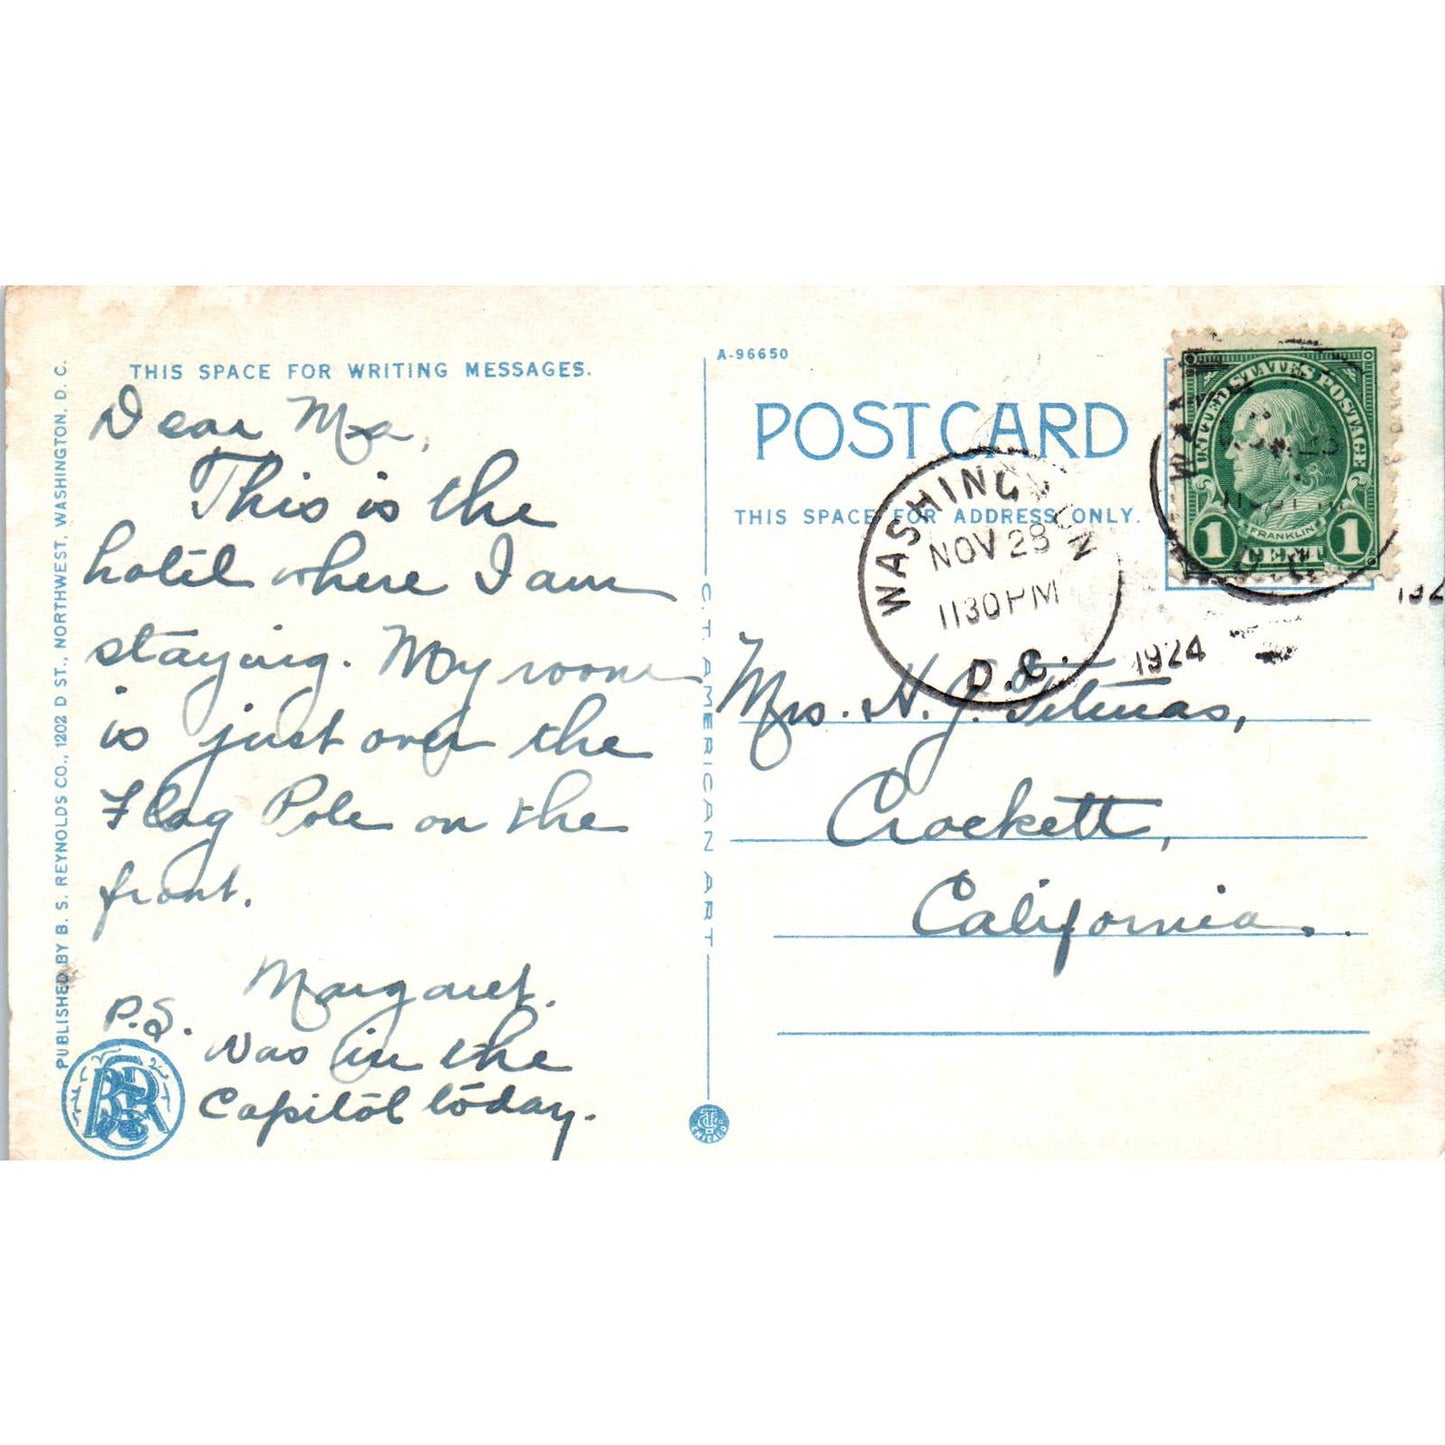 THIS SPACE FOR WRITING MESSAGES.
Dear Ma,
This is the
hotel where I am
staying. My room
is just over the
Flag Pole on the
front.
Margaret.
P.S. Was in the
Capitol today.
PUBLISHED BY B. S. REYNOLDS CO., 1202 D ST., NORTHWEST, WASHINGTON, D. C.
C. T. AMERICAN ART
CHICAGO
A-96650
POST CARD
THIS SPACE FOR ADDRESS ONLY.
WASHINGTON
NOV 28
1130 PM
D.C.
1924
UNITED STATES POSTAGE
FRANKLIN
1 CENT 1
Mrs. H. J.
Crockett,
California.